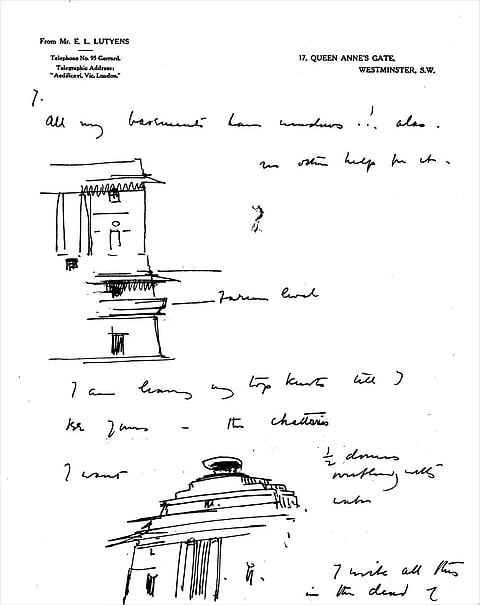 From Mr. E. L. LUTYENS
Telephone No. 95 Gerrard.
Telegraphic Address:
"Aedificavi, Vic. London."
17, QUEEN ANNE'S GATE,
WESTMINSTER, S.W.
7.
All my basements have windows !! alas.
no other help for it.
Forum level
I am leaving my top knots till I
see yours - the chattris
I want
½ domes
overflowing with
water
I write all this
in the dead of